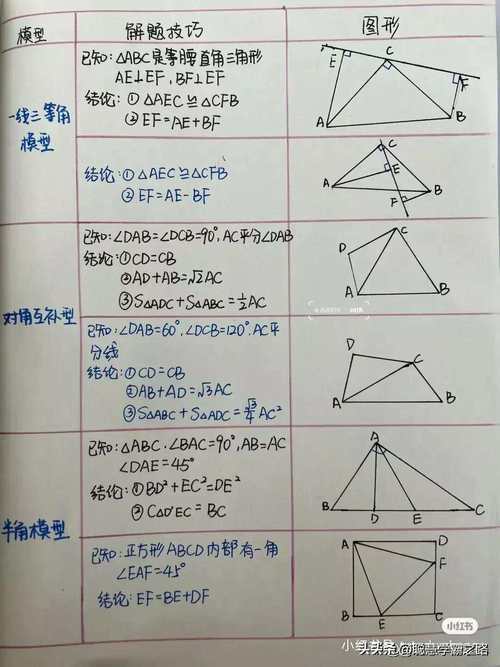 模型
解题技巧
图形
一线三等角
模型
已知:△ABC是等腰直角三角形
AE⊥EF,BF⊥EF
结论:①△AEC≌△CFB
②EF=AE+BF
E
C
F
A
B
结论:①△AEC≌△CFB
②EF=AE-BF
C
E
A
B
F
对角互补型
已知:∠DAB=∠DCB=90°,AC平分∠DAB
结论:①CD=CB
②AD+AB=√2AC
③S△ADC+S△ABC=½AC
D
C
A
B
已知:∠DAB=60°,∠DCB=120°.AC平
分线
结论:①CD=CB
②AB+AD=√3AC
③S△ABC+S△ADC=√3/4AC²
D
C
A
B
半角模型
已知:△ABC.∠BAC=90°,AB=AC
∠DAE=45°
结论:①BD²+EC²=DE²
②C△D'EC=BC
A
B
D
E
C
已知:正方形ABCD内部有一角
∠EAF=45°
结论:EF=BE+DF
A
D
F
B
E
C
小红书
头条@聪慧学霸之路